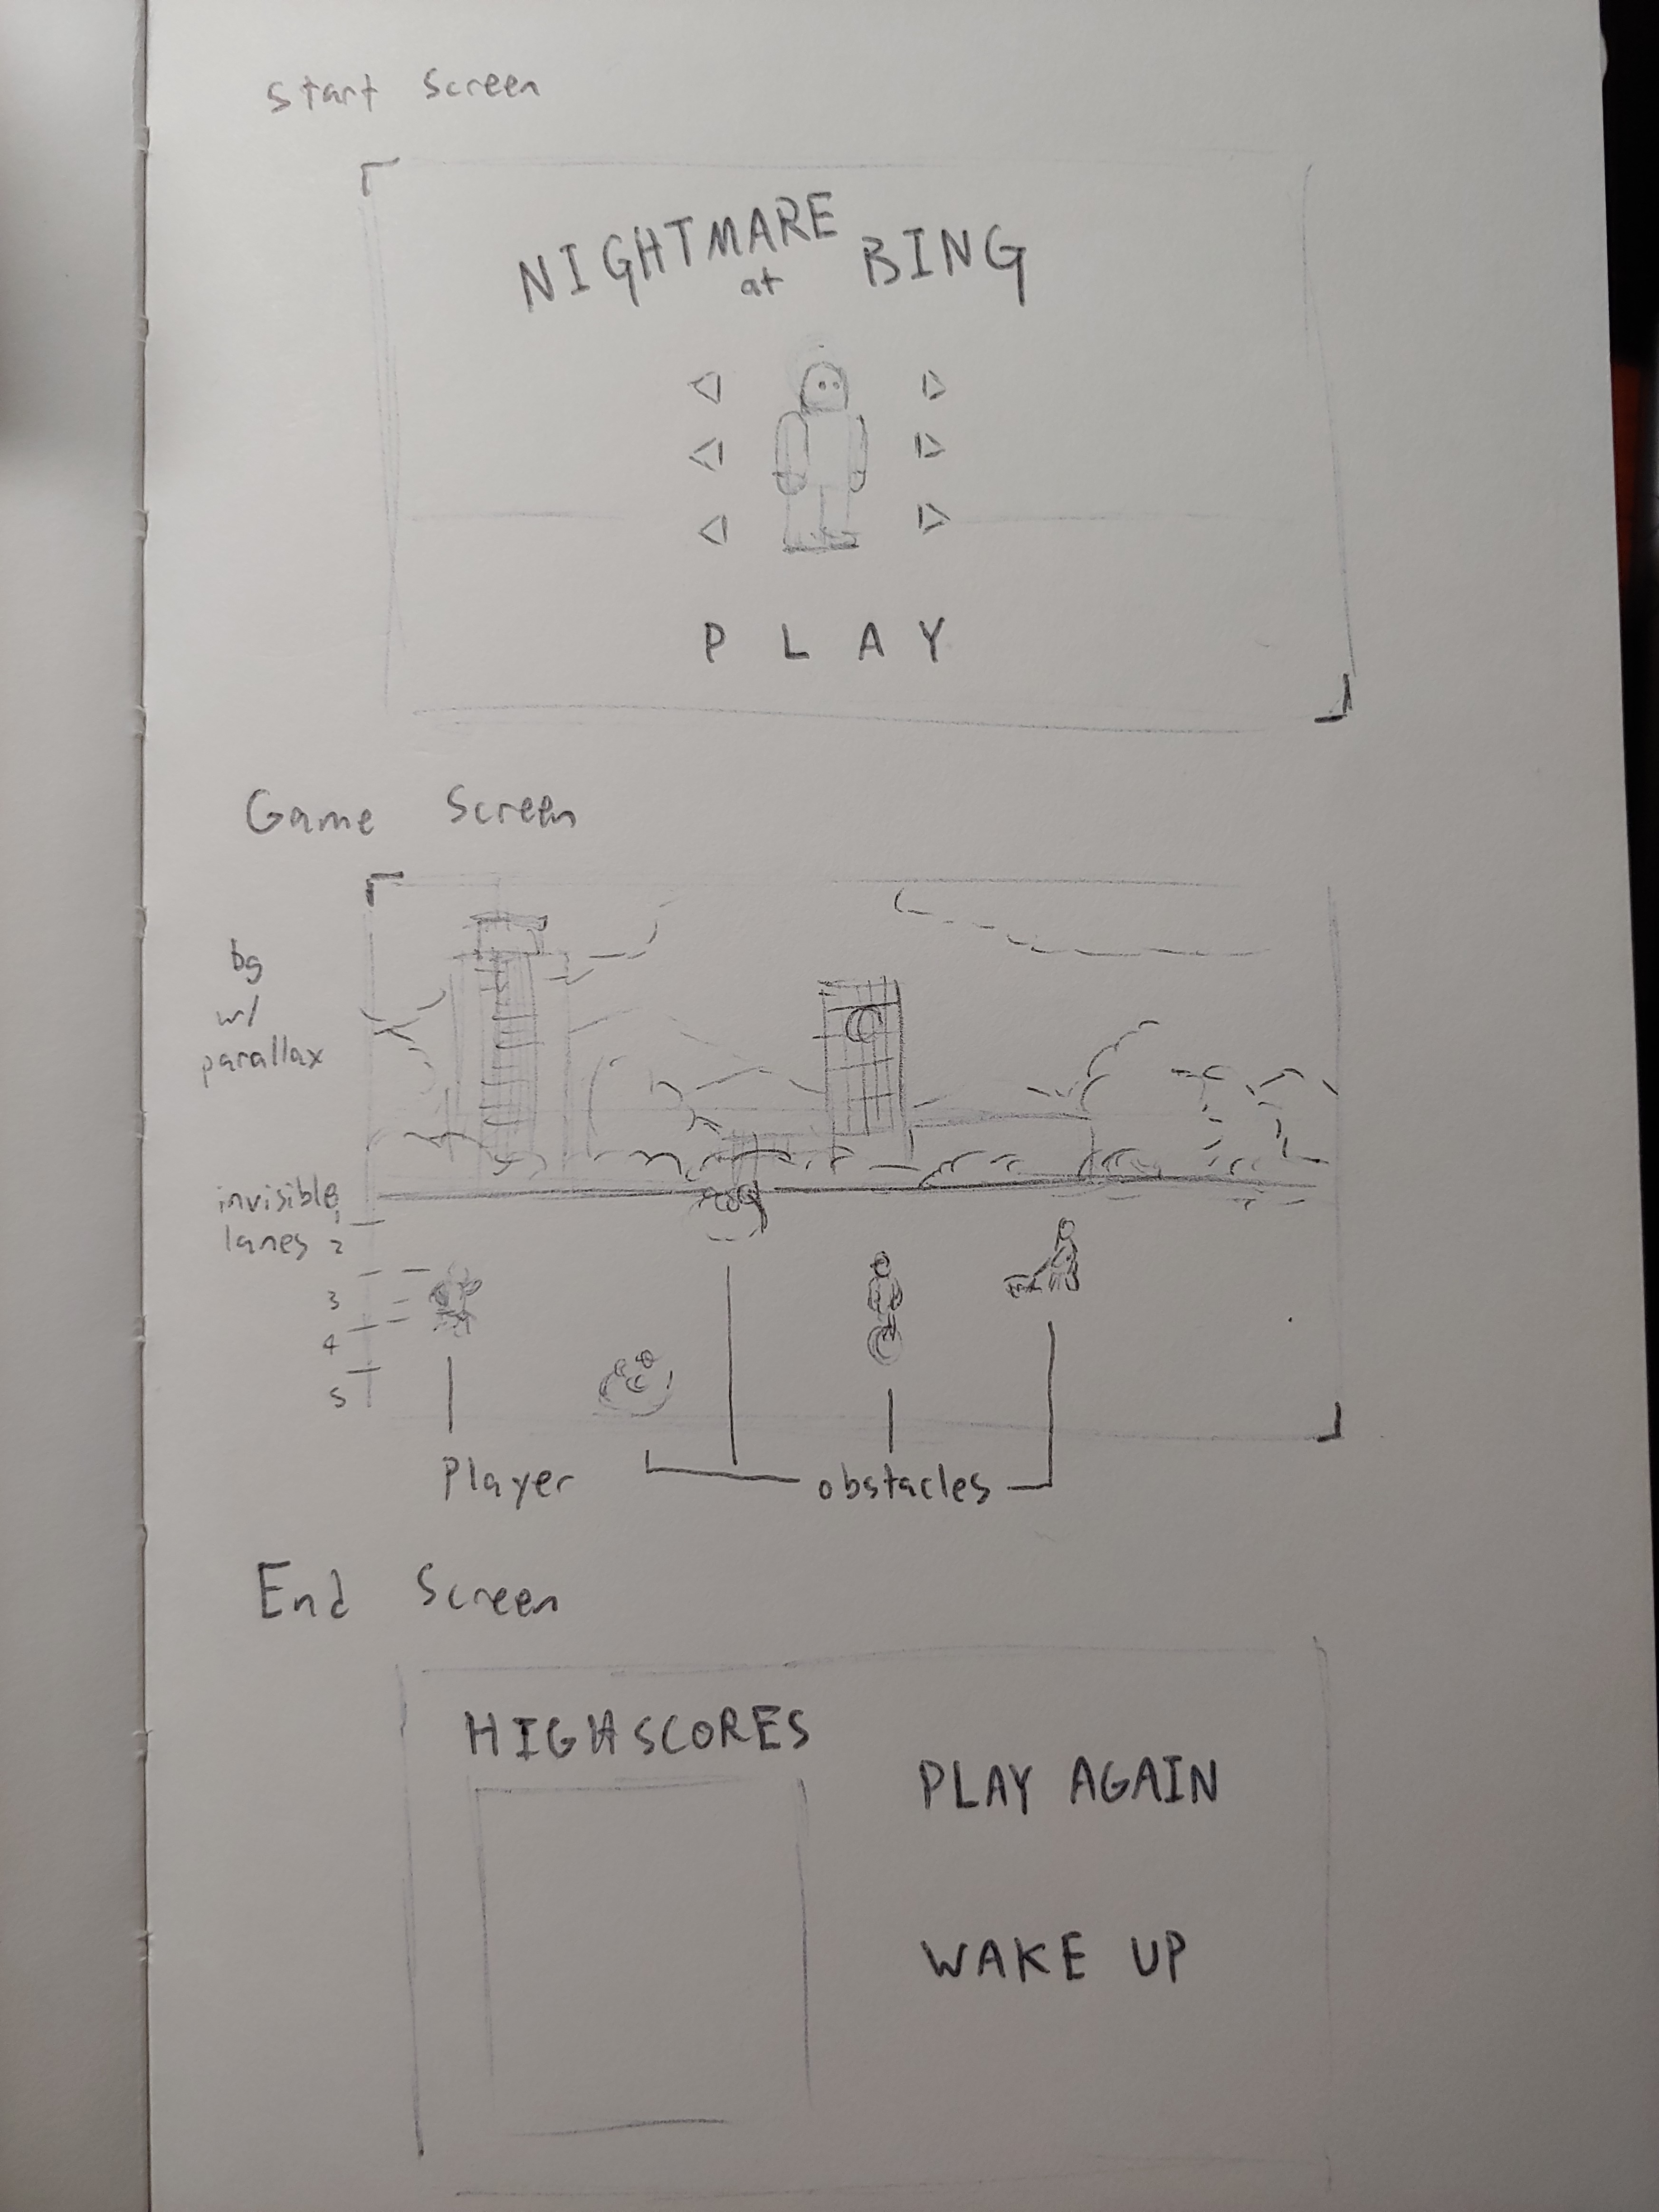 Start Screen
NIGHTMARE at BING
P L A Y
Game Screen
bg
w/
parallax
invisible
lanes
1
2
3
4
5
Player
obstacles
End Screen
HIGHSCORES
PLAY AGAIN
WAKE UP